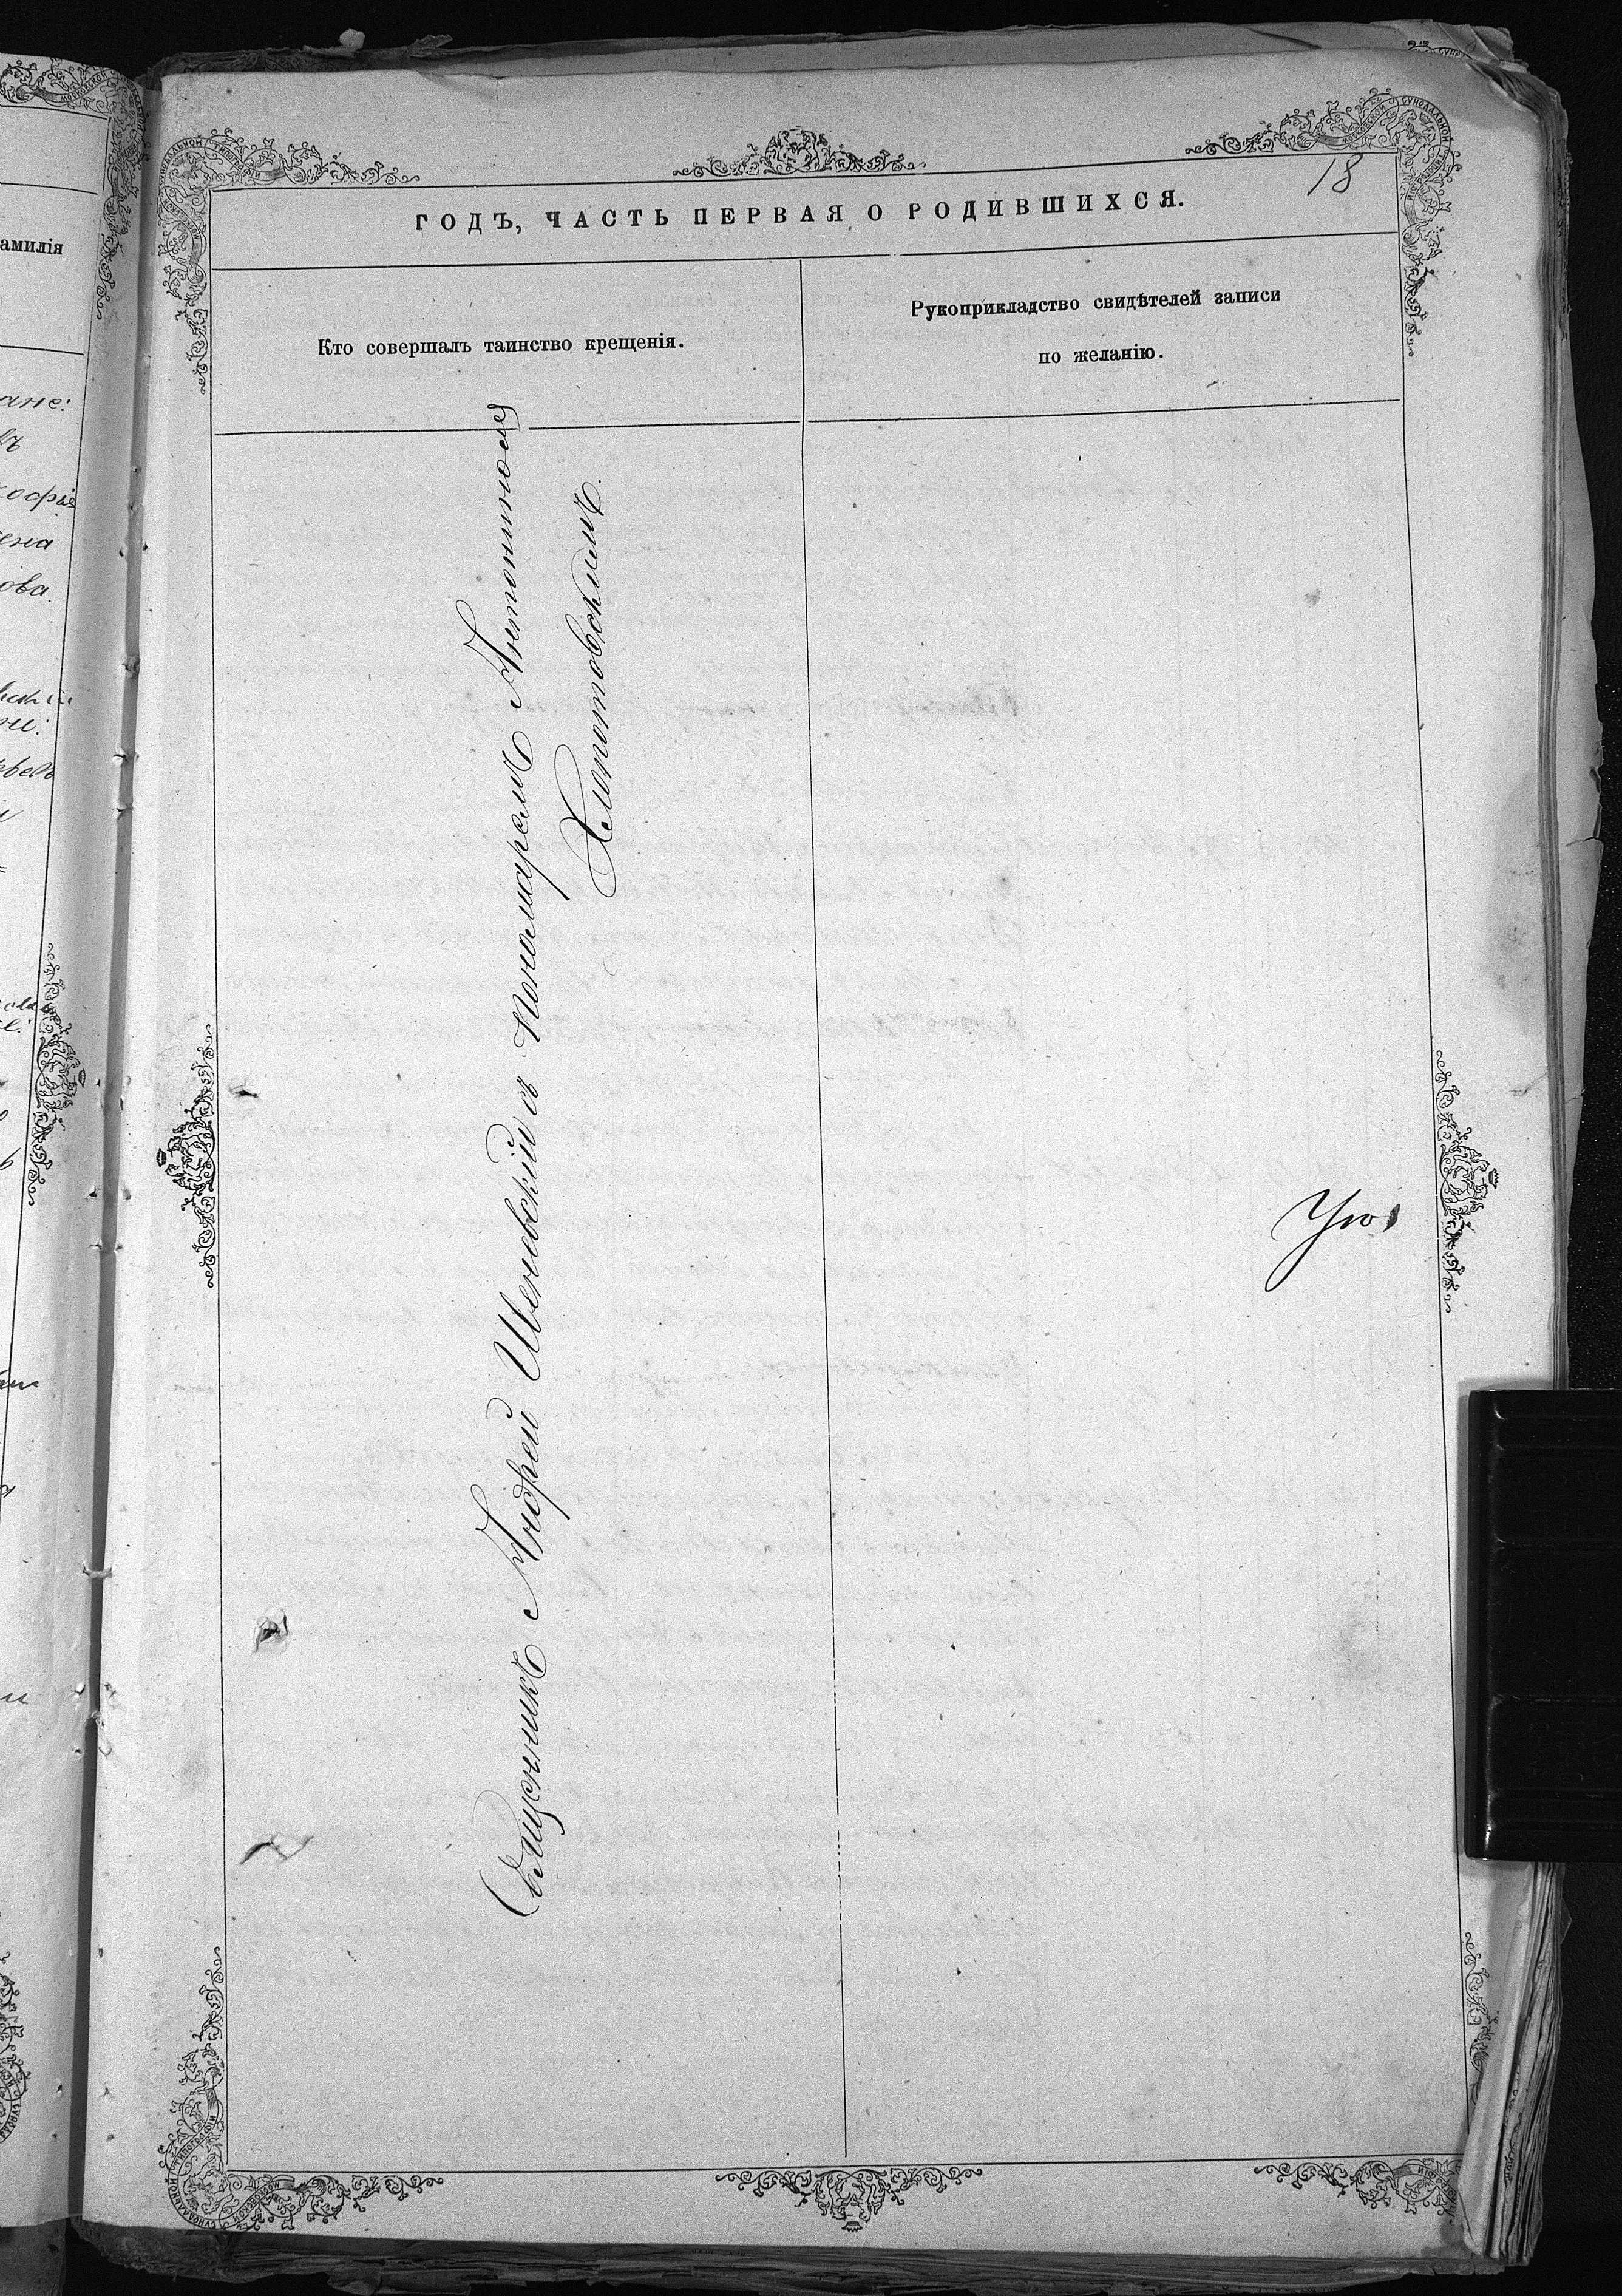 18
ГОДЪ, ЧАСТЬ ПЕРВАЯ О РОДИВШИХСЯ.
Кто совершалъ таинство крещенія.
Рукоприкладство свидѣтелей записи
по желанію.
Священникъ Андрей Шеневскій съ пономаремъ Антониномъ
Хлопотовскимъ.
амилія
ане:
офія
ена
ова